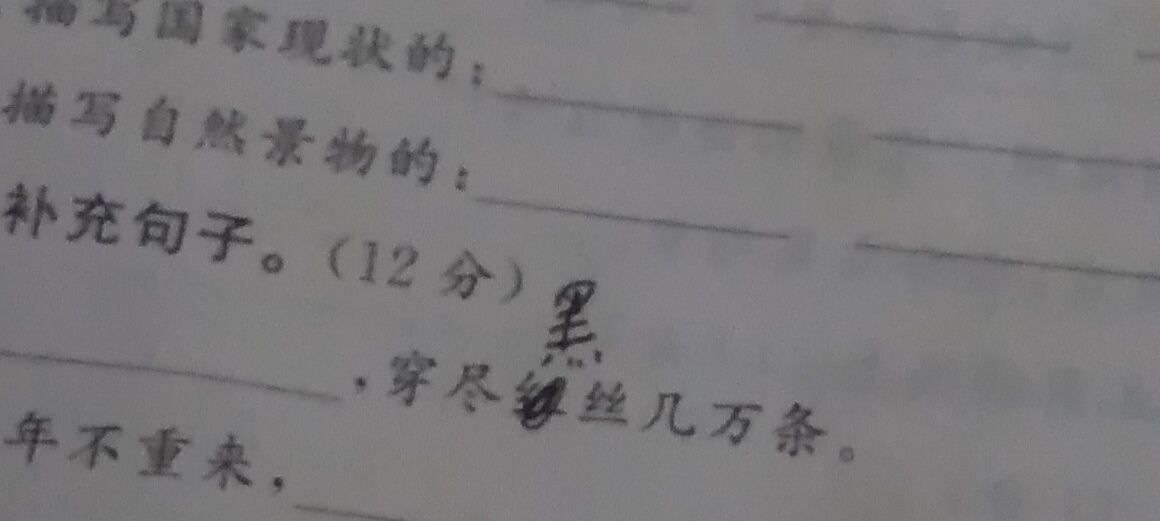 描写国家现状的：
描写自然景物的：
补充句子。（12分）
黑
，穿尽红丝几万条。
年不重来，